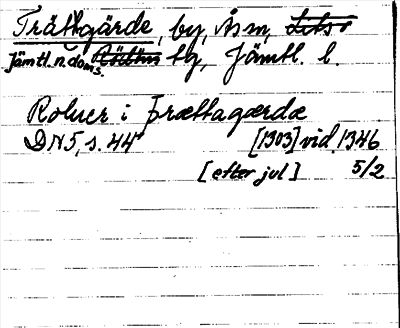 Trättgärde, by, Ås sn, Lits
Jämtl. n. doms. Rödöns tg, Jämtl. l.
Roluer i þrættagærdæ
DN 5, s. 44 [1303] vid. 1346
[efter jul] 5/2